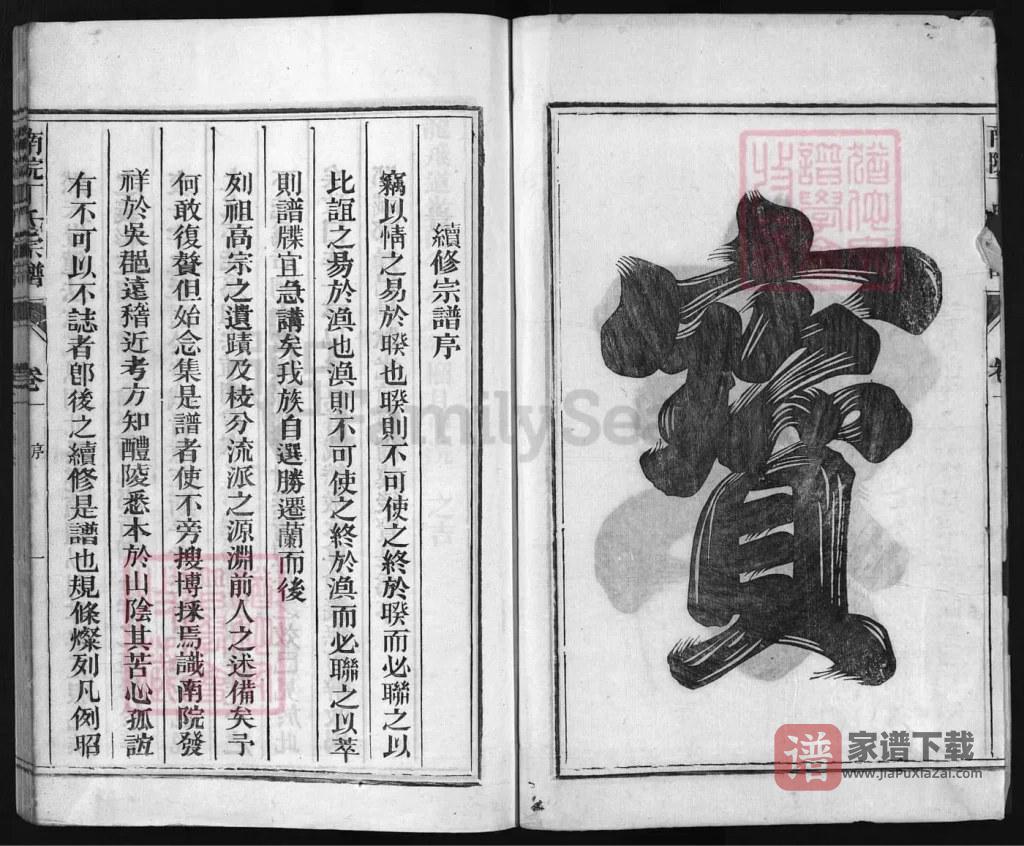 寶
續修宗譜序
竊以情之易於睽也睽則不可使之終於睽而必聯之以
比誼之易於渙也渙則不可使之終於渙而必聯之以萃
則譜牒宜急講矣我族自選勝遷蘭而後
列祖高宗之遺蹟及枝分流派之源淵前人之述備矣予
何敢復贅但始念集是譜者使不旁搜博採焉識南院發
祥於吳郡遠稽近考方知醴陵悉本於山陰其苦心孤詣
有不可以不誌者卽後之續修是譜也規條燦列凡例昭
南院丁氏宗譜
卷一
序
一
FamilySea
譜
家谱下载
www.jiapuxiazai.com